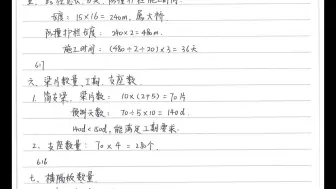 长度: 15×16=240m, 属大桥.
防撞护栏长度: 240×2=48m.
施工时间: (480÷2÷20)×3=36天
617
六、梁片数量、工期、支座数.
1. 简支梁、梁片数: 10×(2+5)=70片
预制天数: 70÷5×10=140d
140d<150d, 能满足工期要求.
2. 支座数量: 70×4=280个.
616
七、横隔板数量.